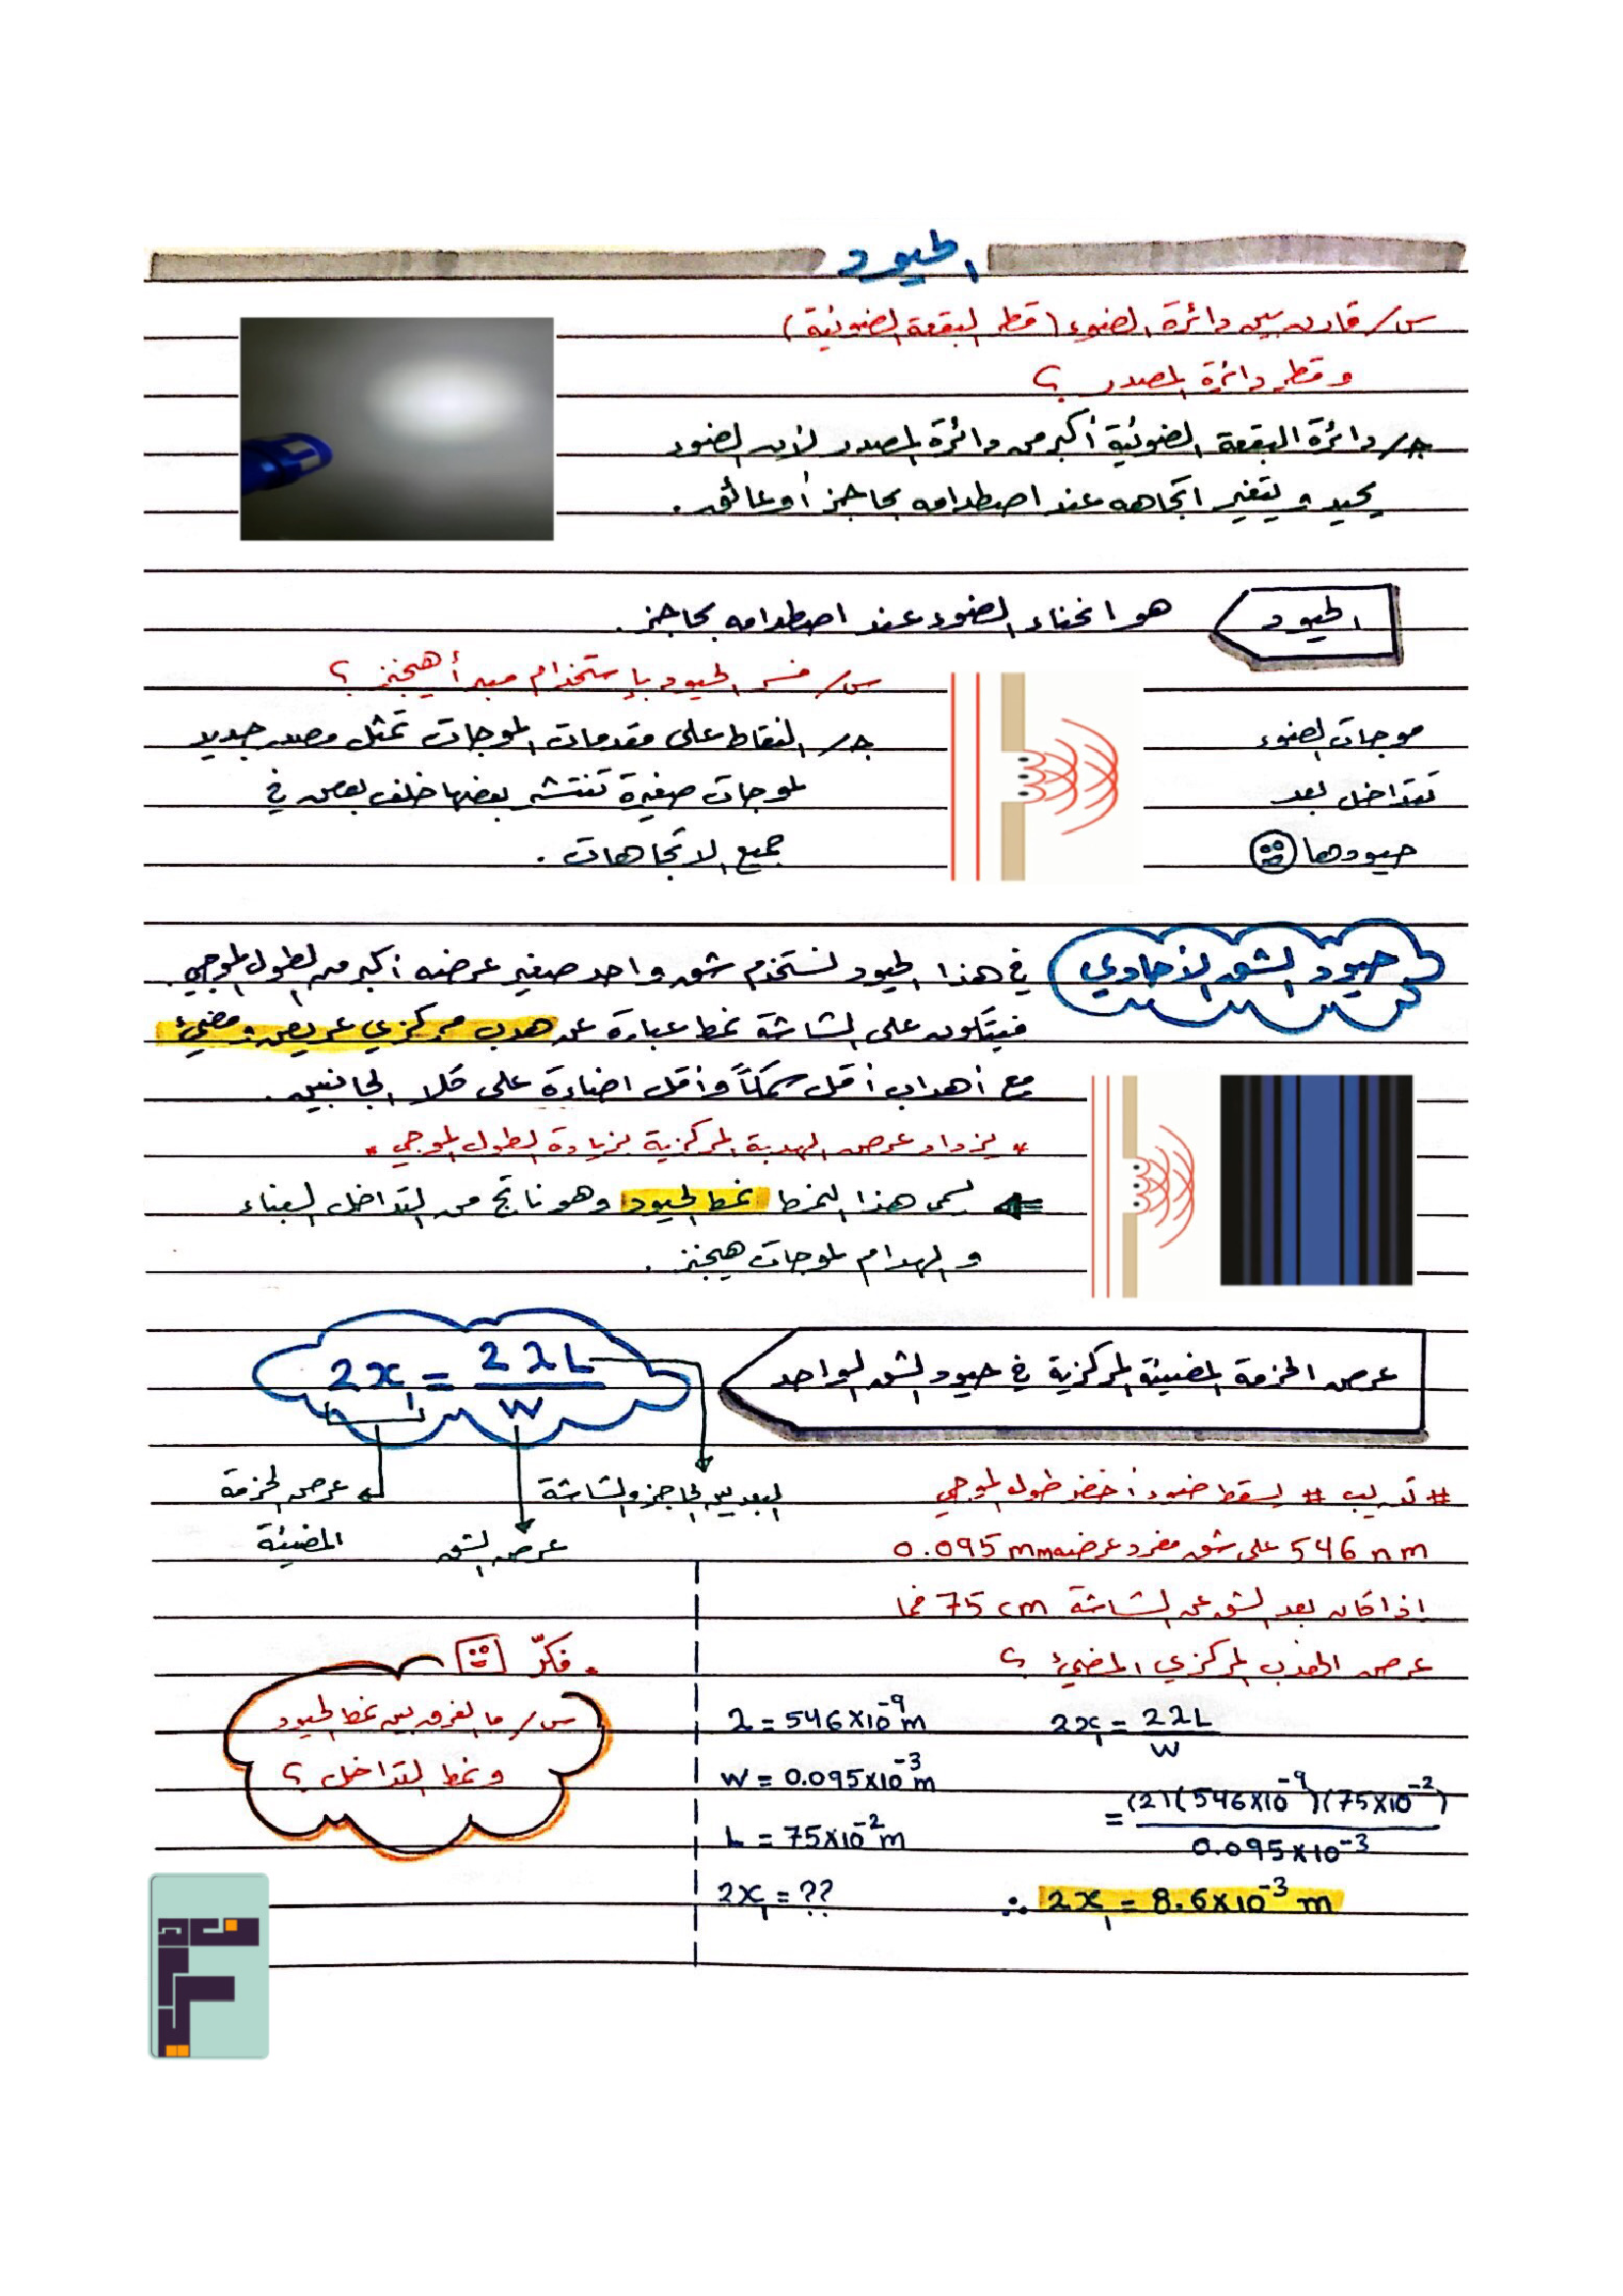 الحيود
س/ قارن بين دائرة الضوء (قطر البقعة الضوئية)
و قطر دائرة المصدر ؟
ج/ دائرة البقعة الضوئية أكبر من دائرة المصدر لأن الضوء
يحيد و يتغير اتجاهه عند اصطدامه بحاجز أو عائق.
الحيود
هو انحناء الضوء عند اصطدامه بحاجز.
س/ فسر الحيود بإستخدام مبدأ هيجنز ؟
ج/ النقاط على مقدمات الموجات تمثل مصدر جديد
لموجات صغيرة تنتشر بعضها خلف بعض في
جميع الاتجاهات .
موجات الضوء
تتداخل بعد
حيودها
حيود الشق الأحادي
في هذا الحيود نستخدم شق واحد صغير عرضه أكبر من الطول الموجي.
فيتكون على الشاشة نمط عبارة عن هدب مركزي عريض ومضيئ
مع أهداب أقل سمكاً وأقل اضاءة على كلا الجانبين.
* يزداد عرض الهدبة المركزية بزيادة الطول الموجي *
يسمى هذا النمط نمط الحيود وهو ناتج من التداخل البناء
و الهدام لموجات هيجنز .
عرض الحزمة المضيئة المركزية في حيود الشق الواحد
2x₁ = 2λL / W
البعد بين الحاجز والشاشة
عرض الشق
عرض الحزمة
المضيئة
# تدريب # يسقط ضوء أخضر طول الموجي
546 nm على شق مفرد عرضه 0.095 mm
اذا كان بعد الشق عن الشاشة 75 cm فما
عرض الهدب المركزي المضيئ ؟
2x₁ = 2λL / W
= (2)(546×10⁻⁹)(75×10⁻²) / 0.095×10⁻³
∴ 2x₁ = 8.6×10⁻³ m
λ = 546×10⁻⁹ m
W = 0.095×10⁻³ m
L = 75×10⁻² m
2x₁ = ??
. فكّر
س/ ما الفرق بين نمط الحيود
و نمط التداخل ؟